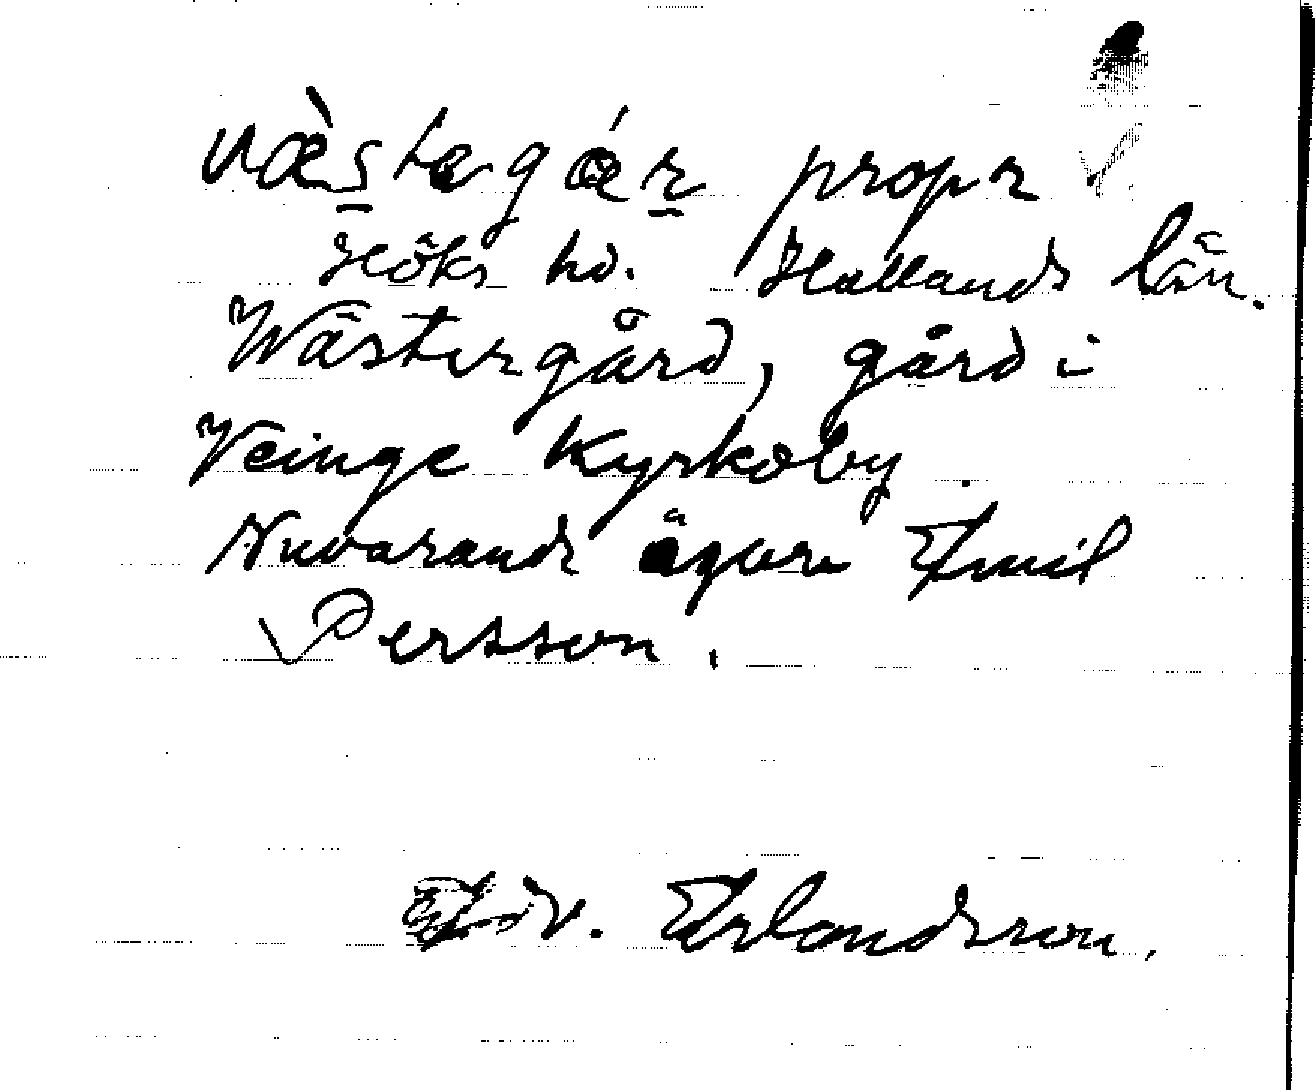 væ̀stegǽr propr
Höks hd. Hallands län.
Wästergård, gård i
Veinge Kyrkoby.
Nuvarande ägare Emil
Persson.
Edv. Erlandsson.